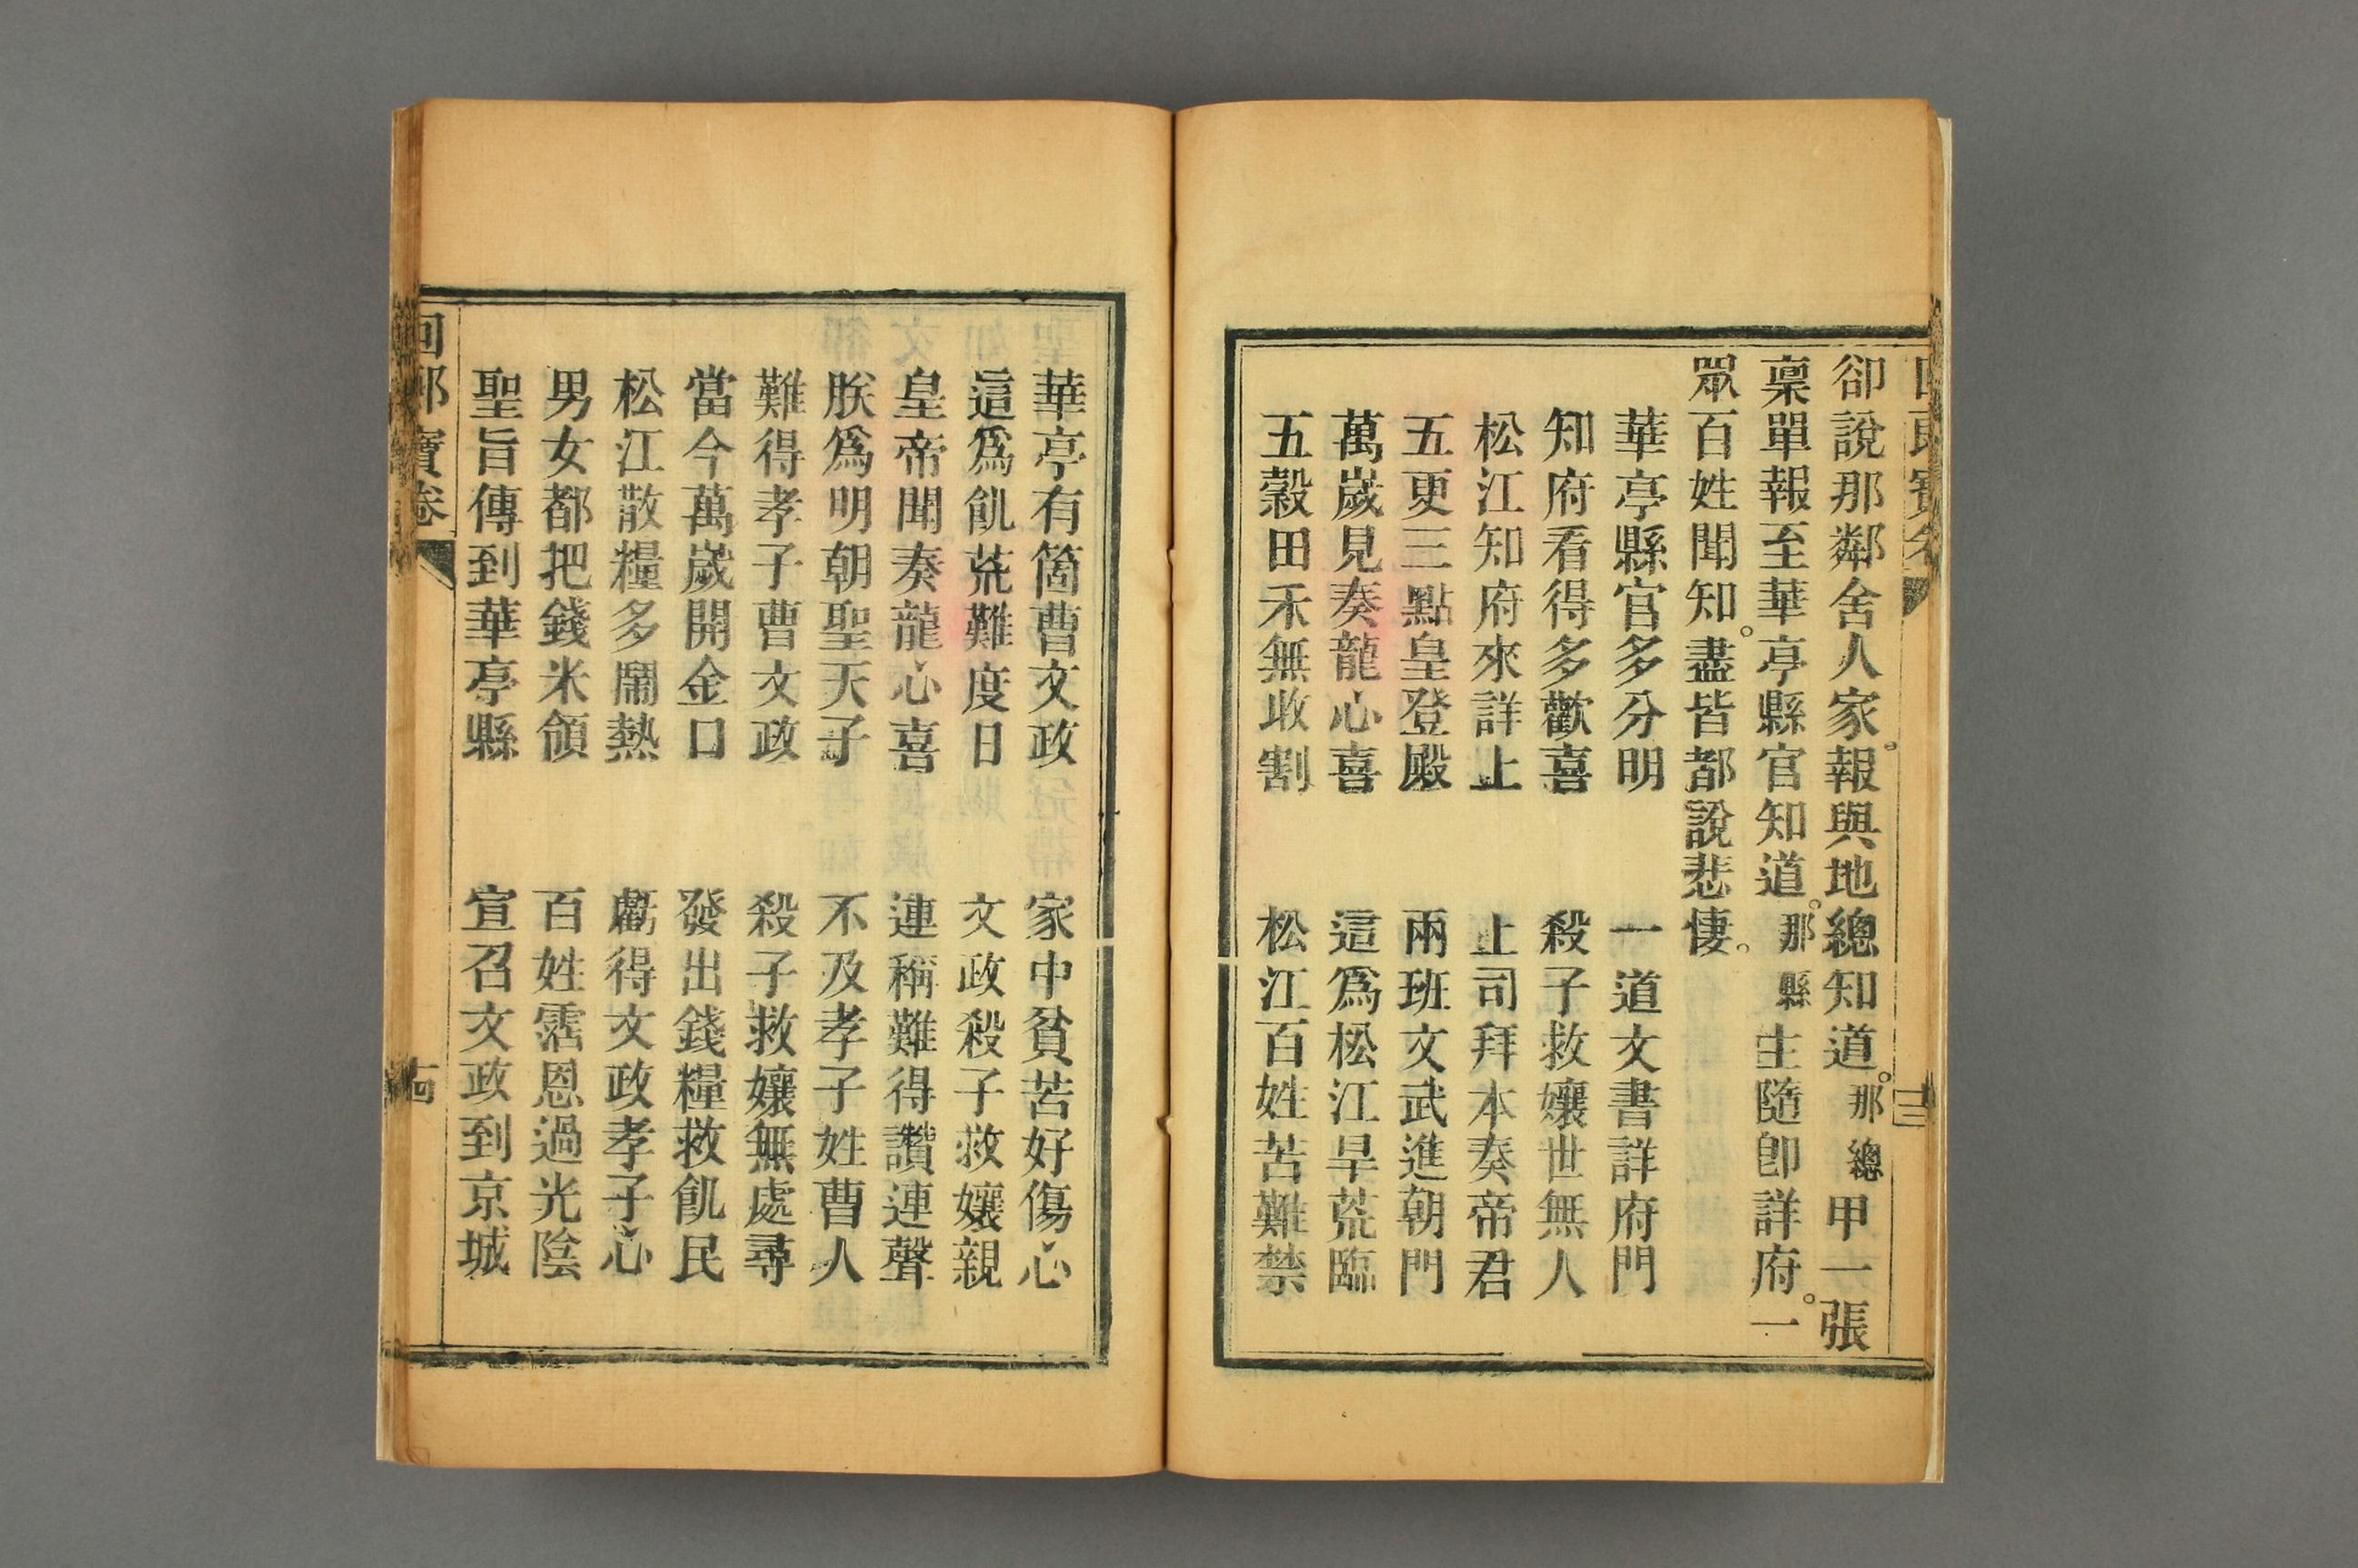 卻說那鄰舍人家。報與地總知道。那總甲一張
稟單報至華亭縣官知道。那縣主隨卽詳府。一
眾百姓聞知。盡皆都說悲悽。
華亭縣官多分明　一道文書詳府門
知府看得多歡喜　殺子救孃世無人
松江知府來詳上　上司拜本奏帝君
五更三點皇登殿　兩班文武進朝門
萬歲見奏龍心喜　這爲松江旱荒臨
五穀田禾無收割　松江百姓苦難禁
十三
華亭有箇曹文政　家中貧苦好傷心
這爲飢荒難度日　文政殺子救孃親
皇帝聞奏龍心喜　連稱難得讚連聲
朕爲明朝聖天子　不及孝子姓曹人
難得孝子曹文政　殺子救孃無處尋
當今萬歲開金口　發出錢糧救飢民
松江散糧多鬧熱　虧得文政孝子心
男女都把錢米領　百姓霑恩過光陰
聖旨傳到華亭縣　宣召文政到京城
回郎寶卷
十四